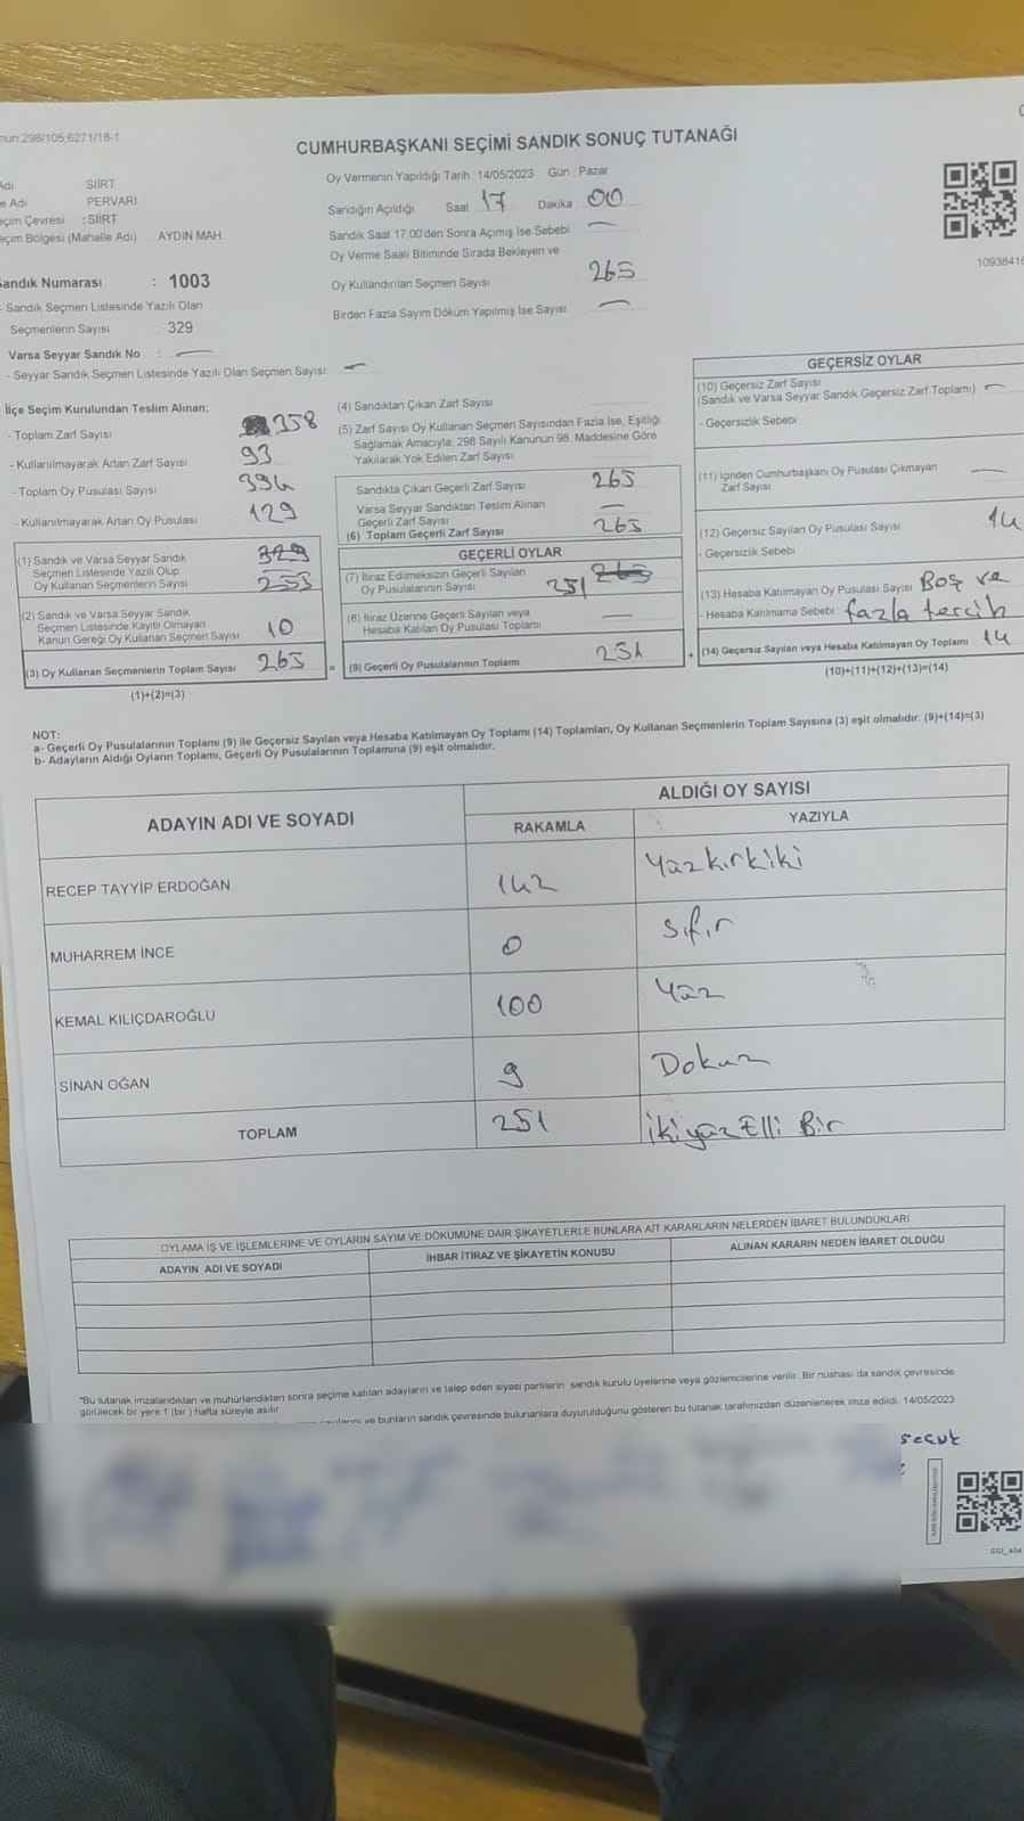 298/105,6271/18-1
CUMHURBAŞKANI SEÇİMİ SANDIK SONUÇ TUTANAĞI
Adı SİİRT
Adı PERVARİ
Seçim Çevresi :SİİRT
Seçim Bölgesi (Mahalle Adı) AYDIN MAH.
Sandık Numarası : 1003
Sandık Seçmen Listesinde Yazılı Olan
Seçmenlerin Sayısı 329
Varsa Seyyar Sandık No : —
- Seyyar Sandık Seçmen Listesinde Yazılı Olan Seçmen Sayısı —
Oy Vermenin Yapıldığı Tarih :14/05/2023 Gün : Pazar
Sandığın Açıldığı Saat 17 Dakika 00
Sandık Saat 17,00'den Sonra Açımış İse Sebebi —
Oy Verme Saati Bitiminde Sırada Bekleyen ve
Oy Kullandırılan Seçmen Sayısı 265
Birden Fazla Sayım Döküm Yapılmış İse Sayısı —
10938416
İlçe Seçim Kurulundan Teslim Alınan;
- Toplam Zarf Sayısı 358
- Kullanılmayarak Artan Zarf Sayısı 93
- Toplam Oy Pusulası Sayısı 394
- Kullanılmayarak Artan Oy Pusulası 129
(1) Sandık ve Varsa Seyyar Sandık
Seçmen Listesinde Yazılı Olup
Oy Kullanan Seçmenlerin Sayısı 329 255
(2) Sandık ve Varsa Seyyar Sandık
Seçmen Listesinde Kayıtlı Olmayan
Kanun Gereği Oy Kullanan Seçmen Sayısı 10
(3) Oy Kullanan Seçmenlerin Toplam Sayısı 265
(1)+(2)=(3)
(4) Sandıktan Çıkan Zarf Sayısı
(5) Zarf Sayısı Oy Kullanan Seçmen Sayısından Fazla İse, Eşitliği
Sağlamak Amacıyla, 298 Sayılı Kanunun 98. Maddesine Göre
Yakılarak Yok Edilen Zarf Sayısı
Sandıkta Çıkan Geçerli Zarf Sayısı 265
Varsa Seyyar Sandıktan Teslim Alınan
Geçerli Zarf Sayısı —
(6) Toplam Geçerli Zarf Sayısı 265
GEÇERLİ OYLAR
(7) İtiraz Edilmeksizin Geçerli Sayılan
Oy Pusulalarının Sayısı 251 265
(8) İtiraz Üzerine Geçerli Sayılan veya
Hesaba Katılan Oy Pusulası Toplamı —
= (9) Geçerli Oy Pusulalarının Toplamı 251
GEÇERSİZ OYLAR
(10) Geçersiz Zarf Sayısı
(Sandık ve Varsa Seyyar Sandık Geçersiz Zarf Toplamı) —
- Geçersizlik Sebebi
(11) İçinden Cumhurbaşkanı Oy Pusulası Çıkmayan
Zarf Sayısı —
(12) Geçersiz Sayılan Oy Pusulası Sayısı 14
- Geçersizlik Sebebi
(13) Hesaba Katılmayan Oy Pusulası Sayısı Boş ve
- Hesaba Katılmama Sebebi : fazla tercih
+ (14) Geçersiz Sayılan veya Hesaba Katılmayan Oy Toplamı 14
(10)+(11)+(12)+(13)=(14)
NOT:
a- Geçerli Oy Pusulalarının Toplamı (9) ile Geçersiz Sayılan veya Hesaba Katılmayan Oy Toplamı (14) Toplamları, Oy Kullanan Seçmenlerin Toplam Sayısına (3) eşit olmalıdır. (9)+(14)=(3)
b- Adayların Aldığı Oyların Toplamı, Geçerli Oy Pusulalarının Toplamına (9) eşit olmalıdır.
ADAYIN ADI VE SOYADI ALDIĞI OY SAYISI
RAKAMLA YAZIYLA
RECEP TAYYİP ERDOĞAN 142 Yüzkırkiki
MUHARREM İNCE 0 Sıfır
KEMAL KILIÇDAROĞLU 100 Yüz
SİNAN OĞAN 9 Dokuz
TOPLAM 251 ikiyüz Elli Bir
OYLAMA İŞ VE İŞLEMLERİNE VE OYLARIN SAYIM VE DÖKÜMÜNE DAİR ŞİKAYETLERLE BUNLARA AİT KARARLARIN NELERDEN İBARET BULUNDUKLARI
ADAYIN ADI VE SOYADI İHBAR İTİRAZ VE ŞİKAYETİN KONUSU ALINAN KARARIN NEDEN İBARET OLDUĞU
"Bu tutanak imzalandıktan ve mühürlendikten sonra seçime katılan adayların ve talep eden siyasi partilerin sandık kurulu üyelerine veya gözlemcilerine verilir. Bir nüshası da sandık çevresinde
görülecek bir yere 1 (bir ) hafta süreyle asılır.
ve bunların sandık çevresinde bulunanlara duyurulduğunu gösteren bu tutanak tarafımızdan düzenlenerek imza edildi. 14/05/2023